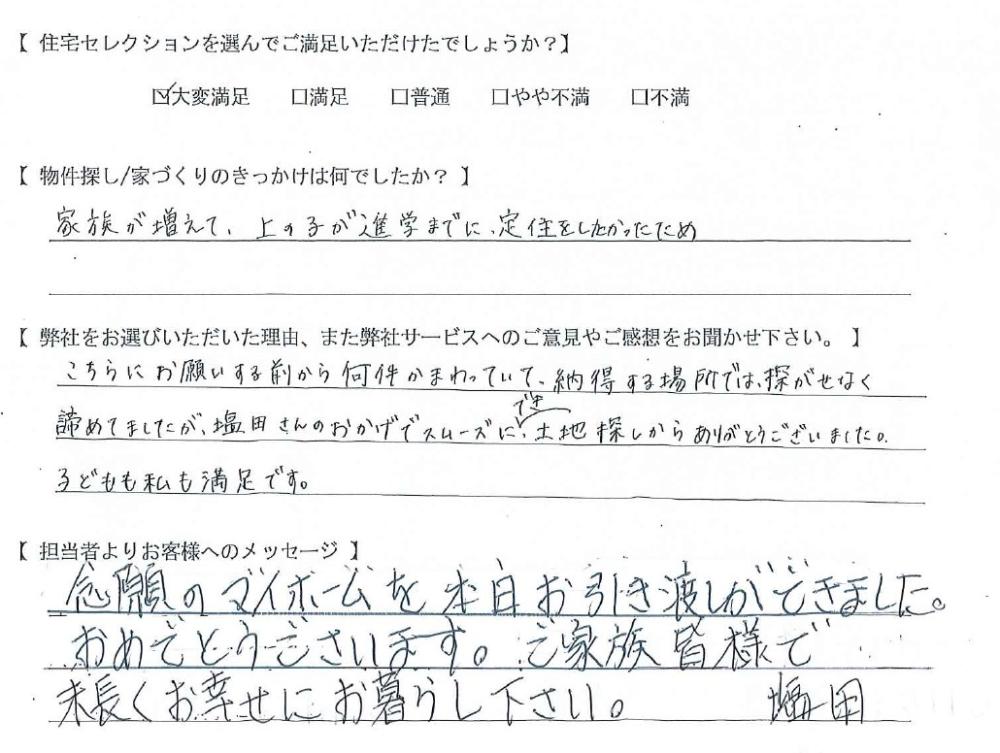 【 住宅セレクションを選んでご満足いただけたでしょうか？】
☑大変満足 □満足 □普通 □やや不満 □不満
【 物件探し/家づくりのきっかけは何でしたか？ 】
家族が増えて、上の子が進学までに、定住をしたかったため
【 弊社をお選びいただいた理由、また弊社サービスへのご意見やご感想をお聞かせ下さい。 】
こちらにお願いする前から何件かまわっていて、納得する場所では、探がせなく
でき
諦めてましたが、塩田さんのおかげでスムーズに、土地探しからありがとうございました。
子どもも私も満足です。
【 担当者よりお客様へのメッセージ 】
念願のマイホームを本日お引き渡しができました。
おめでとうございます。ご家族皆様で
末長くお幸せにお暮らし下さい。 塩田